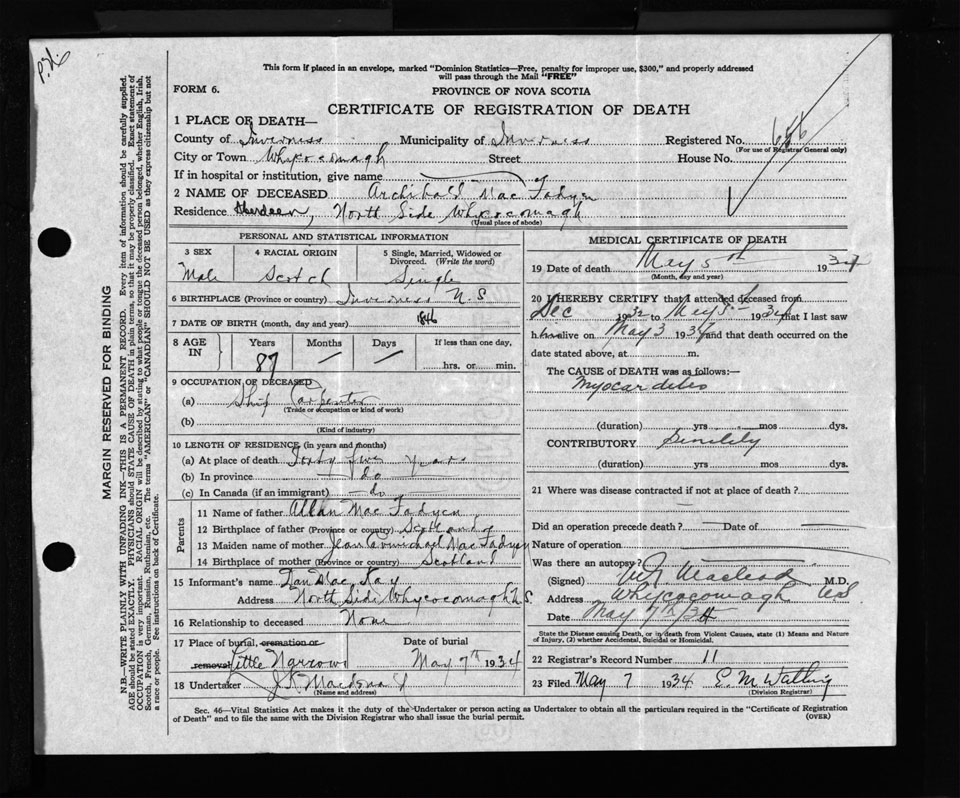 P.H.
This form if placed in an envelope, marked "Dominion Statistics—Free, penalty for improper use, $300," and properly addressed
will pass through the Mail "FREE"
FORM 6.
PROVINCE OF NOVA SCOTIA
CERTIFICATE OF REGISTRATION OF DEATH
1 PLACE OF DEATH—
County of Inverness Municipality of Inverness Registered No. 686
(For use of Registrar General only)
City or Town Whycocomagh Street House No.
If in hospital or institution, give name
2 NAME OF DECEASED Archibald MacFadyen
Residence Aberdeen, North Side Whycocomagh
(Usual place of abode)
PERSONAL AND STATISTICAL INFORMATION
3 SEX Male
4 RACIAL ORIGIN Scotch
5 Single, Married, Widowed or Divorced. (Write the word) Single
6 BIRTHPLACE (Province or country) Inverness N.S
7 DATE OF BIRTH (month, day and year) 1846
8 AGE IN Years 87 Months — Days — If less than one day, hrs. or min.
9 OCCUPATION OF DECEASED
(a) Ship Carpenter
(Trade or occupation or kind of work)
(b)
(Kind of industry)
10 LENGTH OF RESIDENCE (in years and months)
(a) At place of death Sixty five years
(b) In province —do—
(c) In Canada (if an immigrant) —do—
Parents
11 Name of father Allan MacFadyen
12 Birthplace of father (Province or country) Scotland
13 Maiden name of mother Jean Carmichael MacFadyen
14 Birthplace of mother (Province or country) Scotland
15 Informant's name Ian MacKay
Address North Side Whycocomagh N.S.
16 Relationship to deceased None
17 Place of burial, cremation or removal Little Narrows Date of burial May 7th 1934
18 Undertaker J. MacDonald
(Name and address)
MEDICAL CERTIFICATE OF DEATH
19 Date of death May 5th 1934
(Month, day and year)
20 I HEREBY CERTIFY that I attended deceased from
Dec 1932 to May 5 1934 that I last saw
him alive on May 3 1934 and that death occurred on the
date stated above, at m.
The CAUSE of DEATH was as follows:—
Myocardites
(duration) yrs mos dys.
CONTRIBUTORY Senility
(duration) yrs mos dys.
21 Where was disease contracted if not at place of death?
Did an operation precede death? — Date of —
Nature of operation
Was there an autopsy?
(Signed) Macleod M.D.
Address Whycocomagh
Date May 7th 34
State the Disease causing Death, or in death from Violent Causes, state (1) Means and Nature of Injury, (2) whether Accidental, Suicidal or Homicidal.
22 Registrar's Record Number 11
23 Filed May 7 1934 E. M. Watling
(Division Registrar)
Sec. 46—Vital Statistics Act makes it the duty of the Undertaker or person acting as Undertaker to obtain all the particulars required in the "Certificate of Registration
of Death" and to file the same with the Division Registrar who shall issue the burial permit.
(OVER)
MARGIN RESERVED FOR BINDING
N.B.—WRITE PLAINLY WITH UNFADING INK—THIS IS A PERMANENT RECORD. Every item of information should be carefully supplied.
AGE should be stated EXACTLY. PHYSICIANS should STATE CAUSE OF DEATH in plain terms, so that it may be properly classified. Exact statement of
OCCUPATION is very important. RACIAL ORIGIN will be described by stating to what people or tongue the deceased person belonged, whether English, Irish,
Scotch, French, German, Russian, Ruthenian, etc. The terms "AMERICAN" or "CANADIAN" SHOULD NOT BE USED as they express citizenship but not
a race or people. See instructions on back of Certificate.